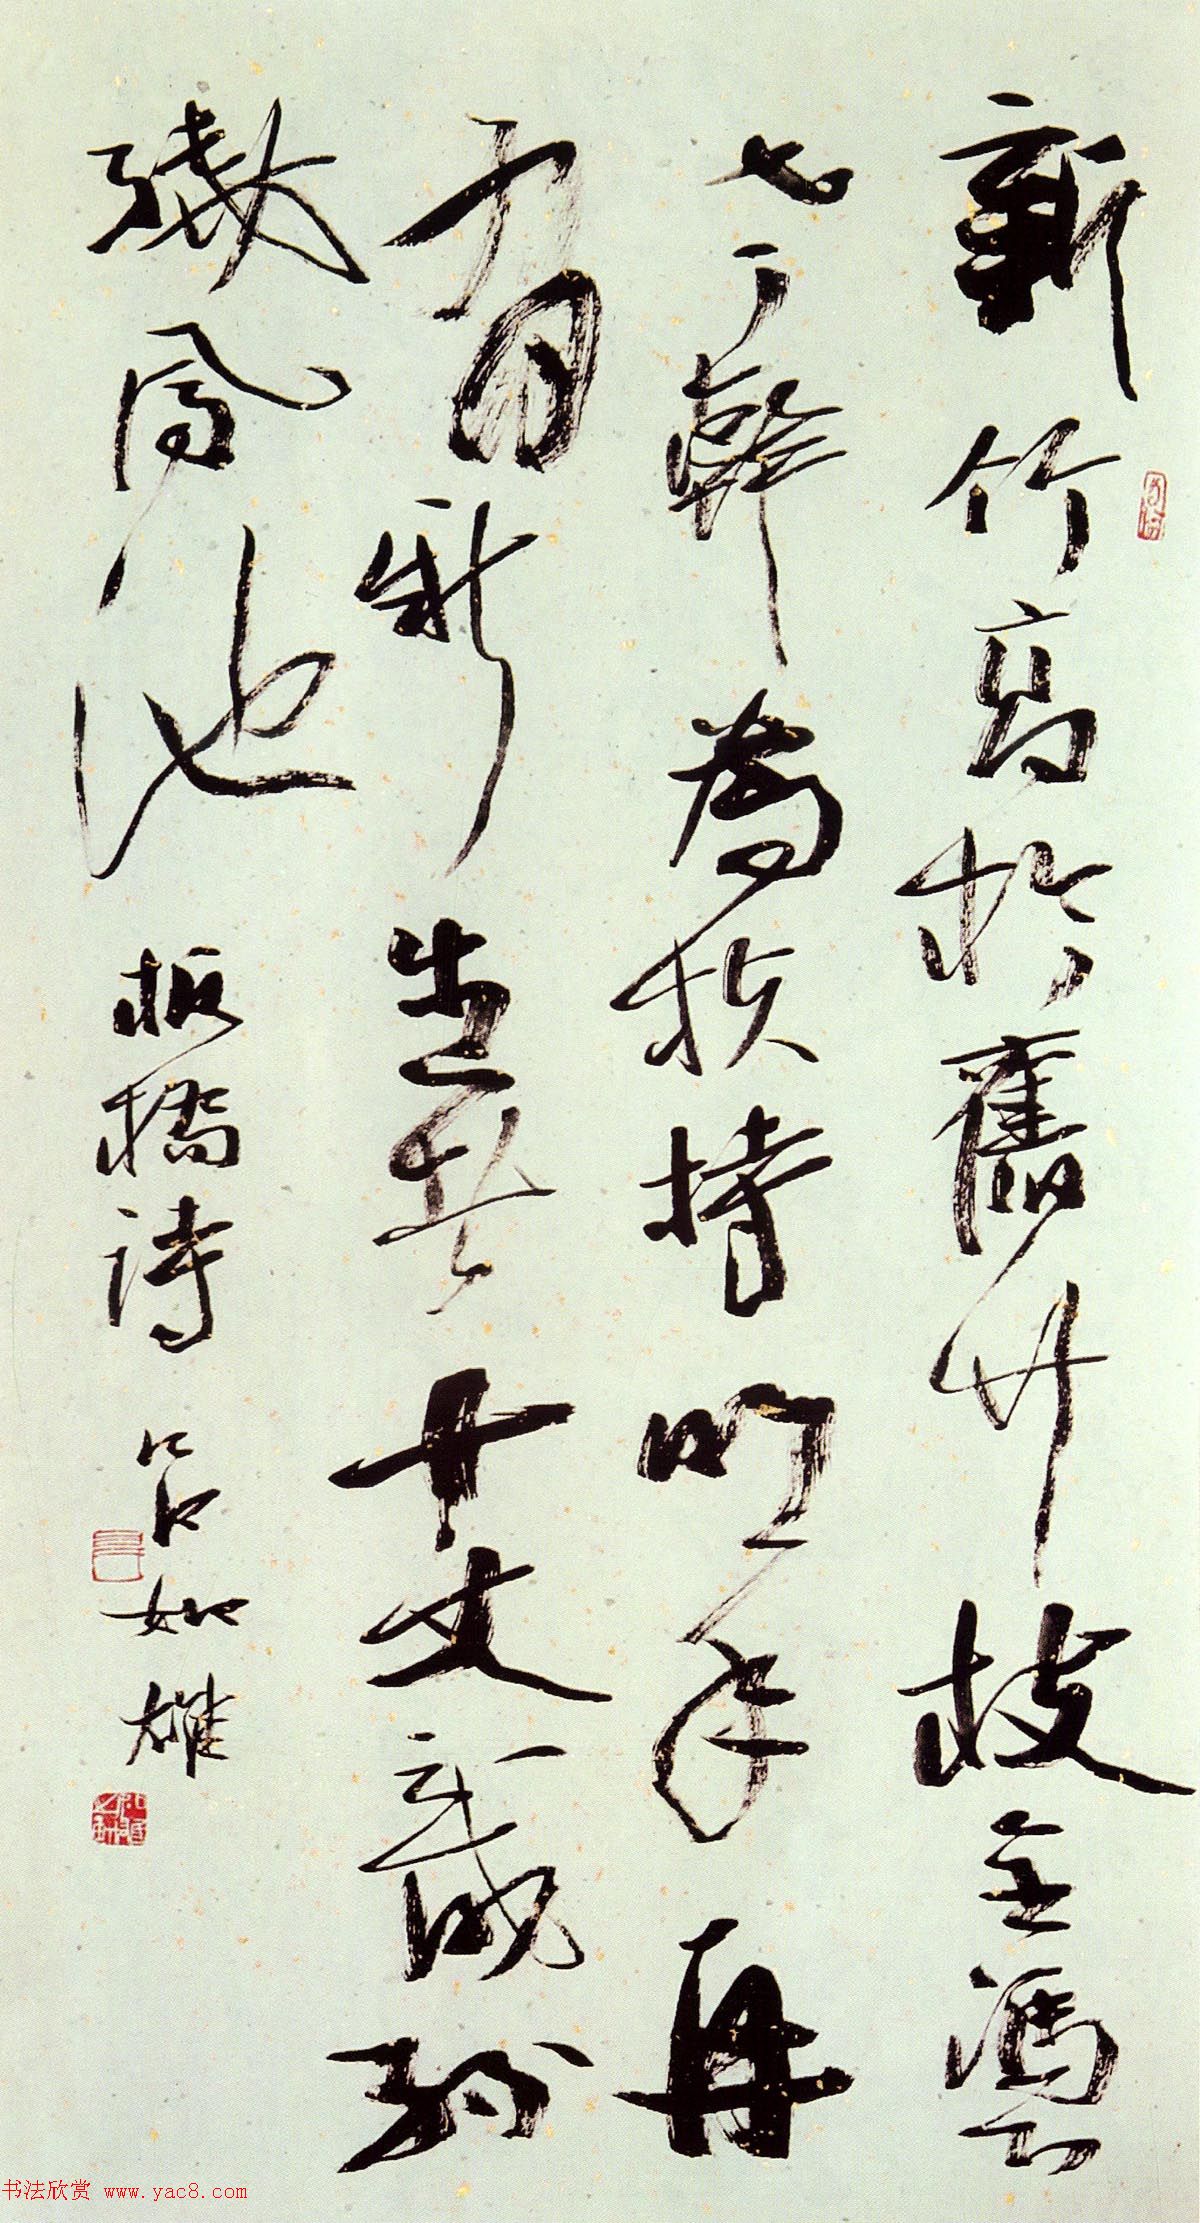 新竹高於舊竹枝全憑
老幹為扶持明年再
有新生者十丈龍孫
繞鳳池 板橋詩 呂如雄
书法欣赏 www.yac8.com